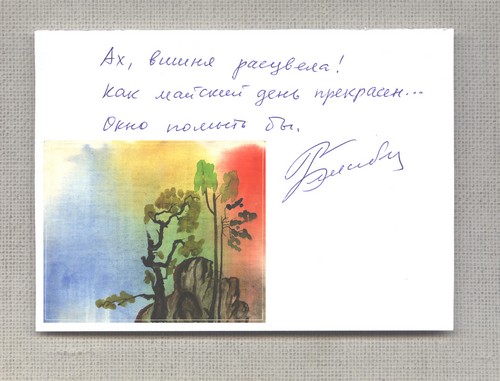 Ах, вишня расцвела!
Как майский день прекрасен...
Окно помыть бы.